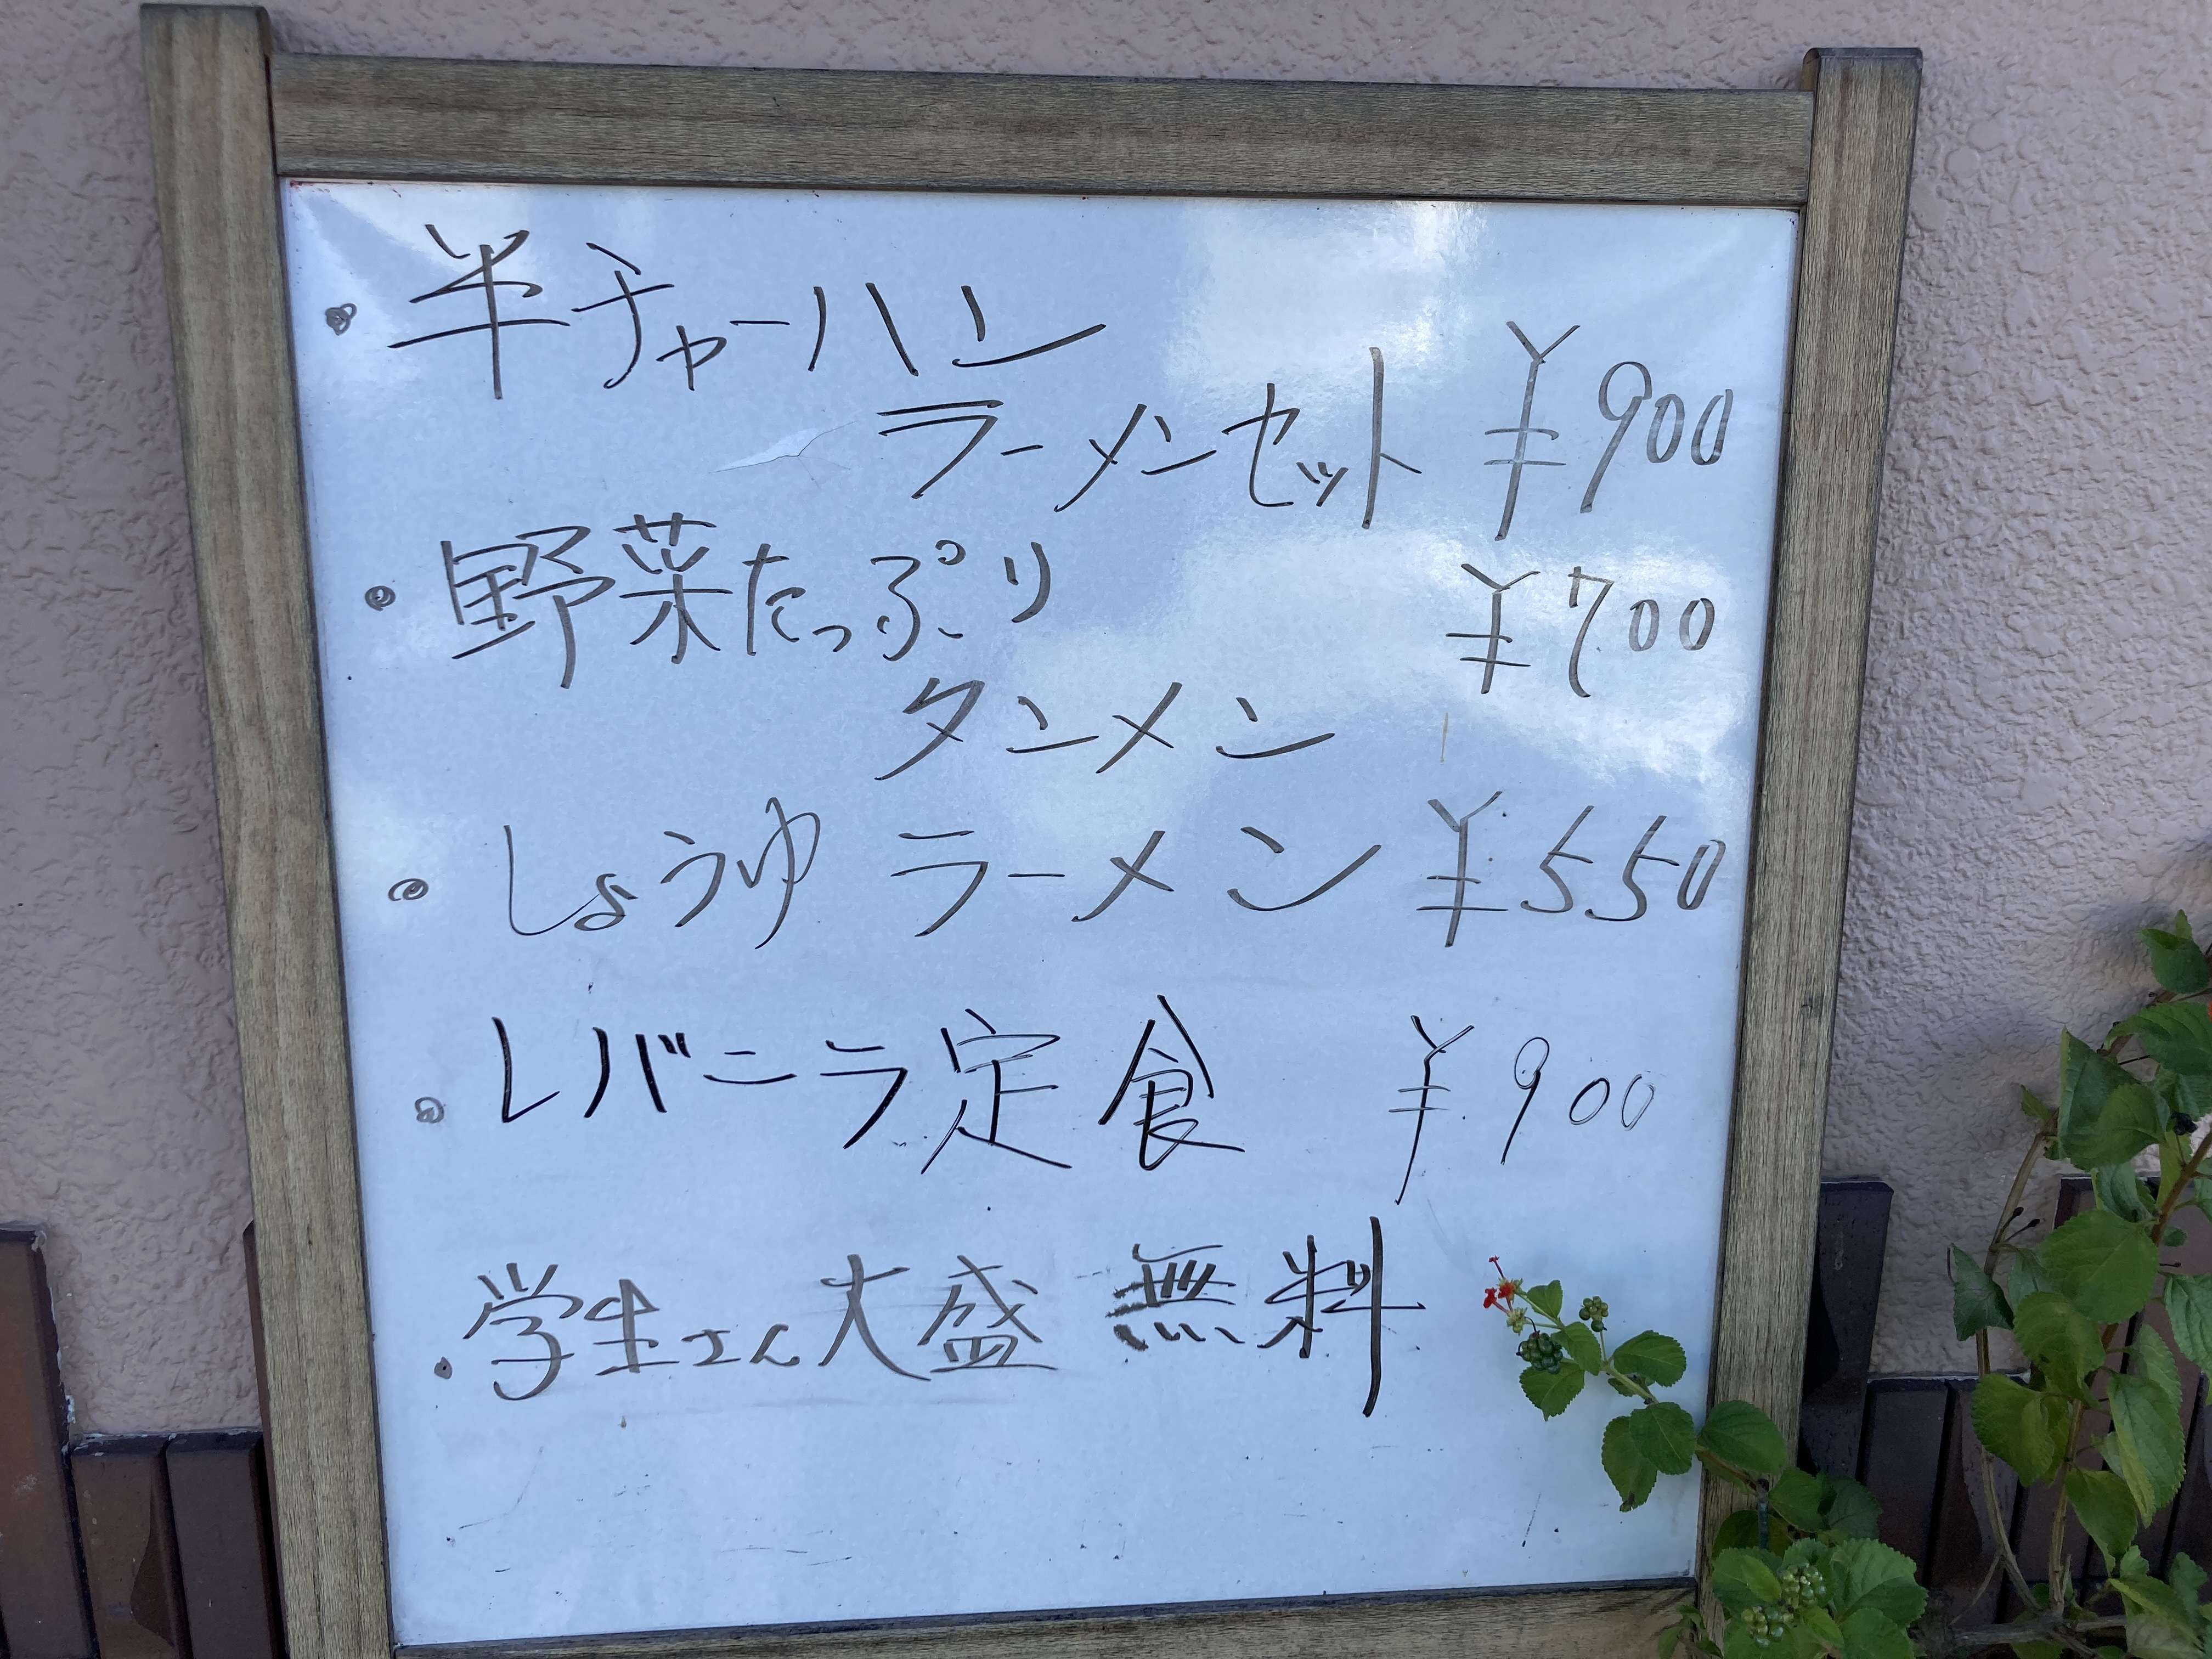 ・半チャーハン
ラーメンセット ¥900
・野菜たっぷり ¥700
タンメン
・しょうゆ ラーメン ¥550
・レバニラ定食 ¥900
・学生さん大盛 無料